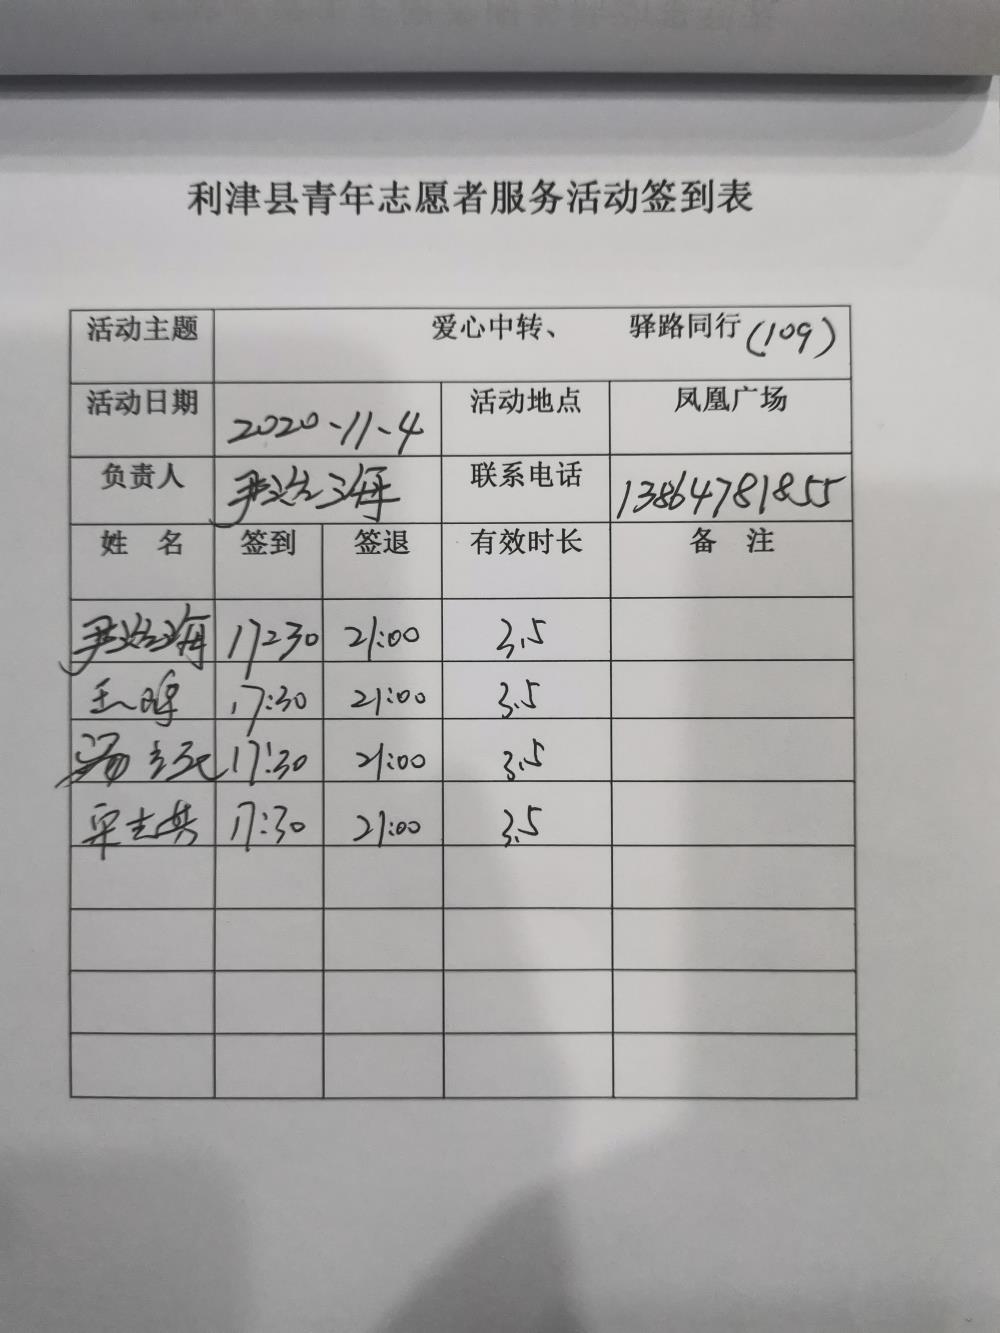 利津县青年志愿者服务活动签到表
活动主题 爱心中转、 驿路同行 (109)
活动日期 2020-11-4 活动地点 凤凰广场
负责人 尹治海 联系电话 13864781855
姓 名 签到 签退 有效时长 备 注
尹治海 17:30 21:00 3.5
17:30 21:00 3.5
17:30 21:00 3.5
17:30 21:00 3.5